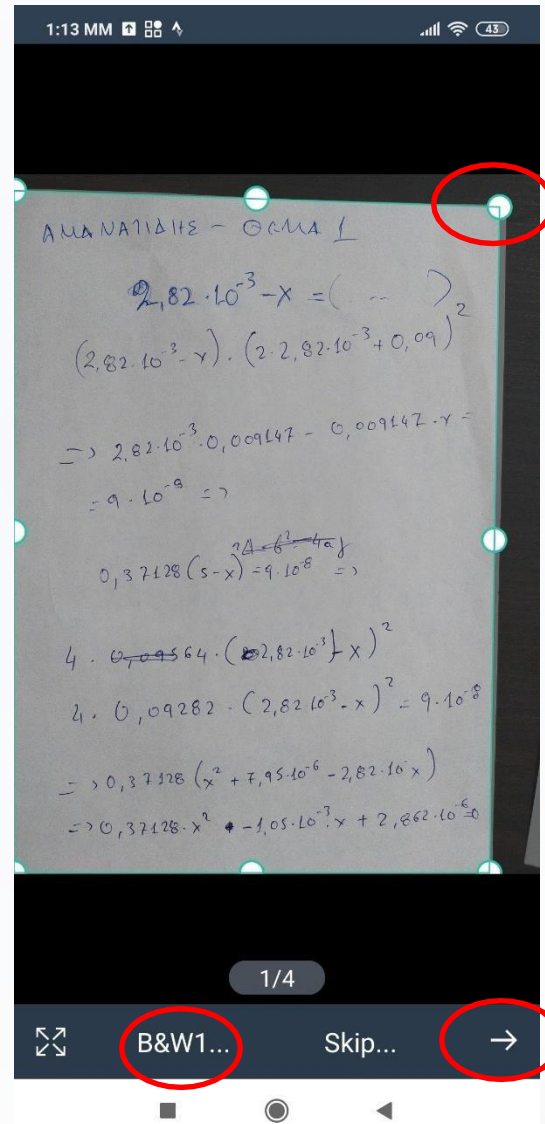 1:13 MM 43
ΑΜΑΝΑΤΙΔΗΣ - ΘΕΜΑ 1
2,82·10⁻³-x =( -- )
(2,82·10⁻³-x)·(2·2,82·10⁻³+0,09)²
=> 2,82·10⁻³·0,009147 - 0,009147·x =
= 9·10⁻⁸ =>
0,37128(s-x)=9·10⁻⁸ =>
4· 0,09564·(2,82·10⁻³-x)²
4· 0,09282·(2,82·10⁻³-x)² = 9·10⁻⁸
=> 0,37128(x²+7,95·10⁻⁶-2,82·10 x)
=> 0,37128·x² -1,05·10⁻³·x + 2,862·10⁻⁶=0
1/4
B&W1... Skip...